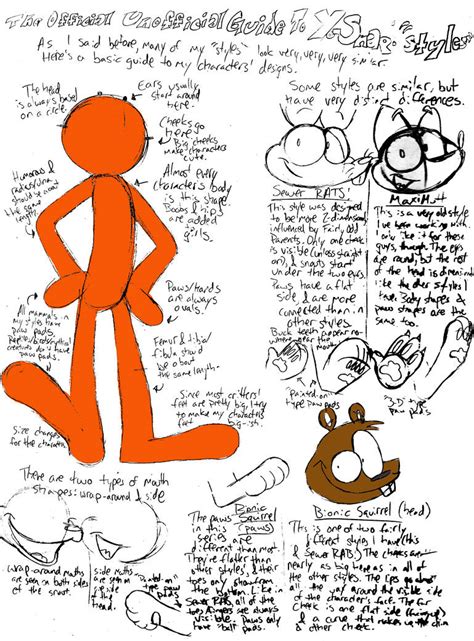 The Official Unofficial Guide To
"Styles"
As I said before, many of my "styles" look very, very, very similar.
Here's a basic guide to my characters' designs.
The head
is always based
on a circle.
Ears usually
start around
here.
Cheeks go
here
Big cheeks
make characters
cute.
Almost every
character's body
is this shape.
Boobs & hips
are added
girls.
Humorous &
radius/ulna
should be about
the same
length.
Paws/Hands
are always
ovals.
All mammals in
my styles have
paw pads.
creatures don't have
paw pads.
Femur & tibia/
fibula should
be about
the same length.
Since most critters'
feet are pretty big, I try
to make my characters
big-ish.
Size changes
for the character
Some styles are similar, but
have very distinct differences.
Sewer RATS'
This style was designed
to be more 2-dimensional,
influenced by Fairly Odd
Parents. Only one cheek
is visible (unless straight
on), & snouts start
under the two eyes.
Paws have a flat
side, & are more
than in
other styles.
Buck teeth appear no-
where near the mouth.
MaxiMutt
This is a very old style
I've been working with.
I only use it for these
guys, though. The eyes
are round, but the rest
of the head is
like the other styles I
have. Body shapes &
paw shapes are the
same too.
Painted-on
type paw pads
"3-D" type
paw pads
There are two types of mouth
shapes: wrap-around & side
wrap-around mouths
are seen on both sides
of the snout.
side mouths
are seen on
one side
of the
snout.
Bionic
Squirrel
(paws)
The paws in this
series are
different than most.
They're flatter than
other styles, & their
toes only show from
the bottom. Like in
Sewer RATS, all of the
toes/fingers are always
visible. Paws only
have "ball" pads.
Bionic Squirrel (head)
This is one of two fairly
different styles I have (this &
Sewer RATS.) The cheeks are
nearly as big here as in all of
the other styles. The lips go almost
all the way around the visible side
of the character's face. The far
cheek is one flat side
& a curve that makes up the
other cheek.